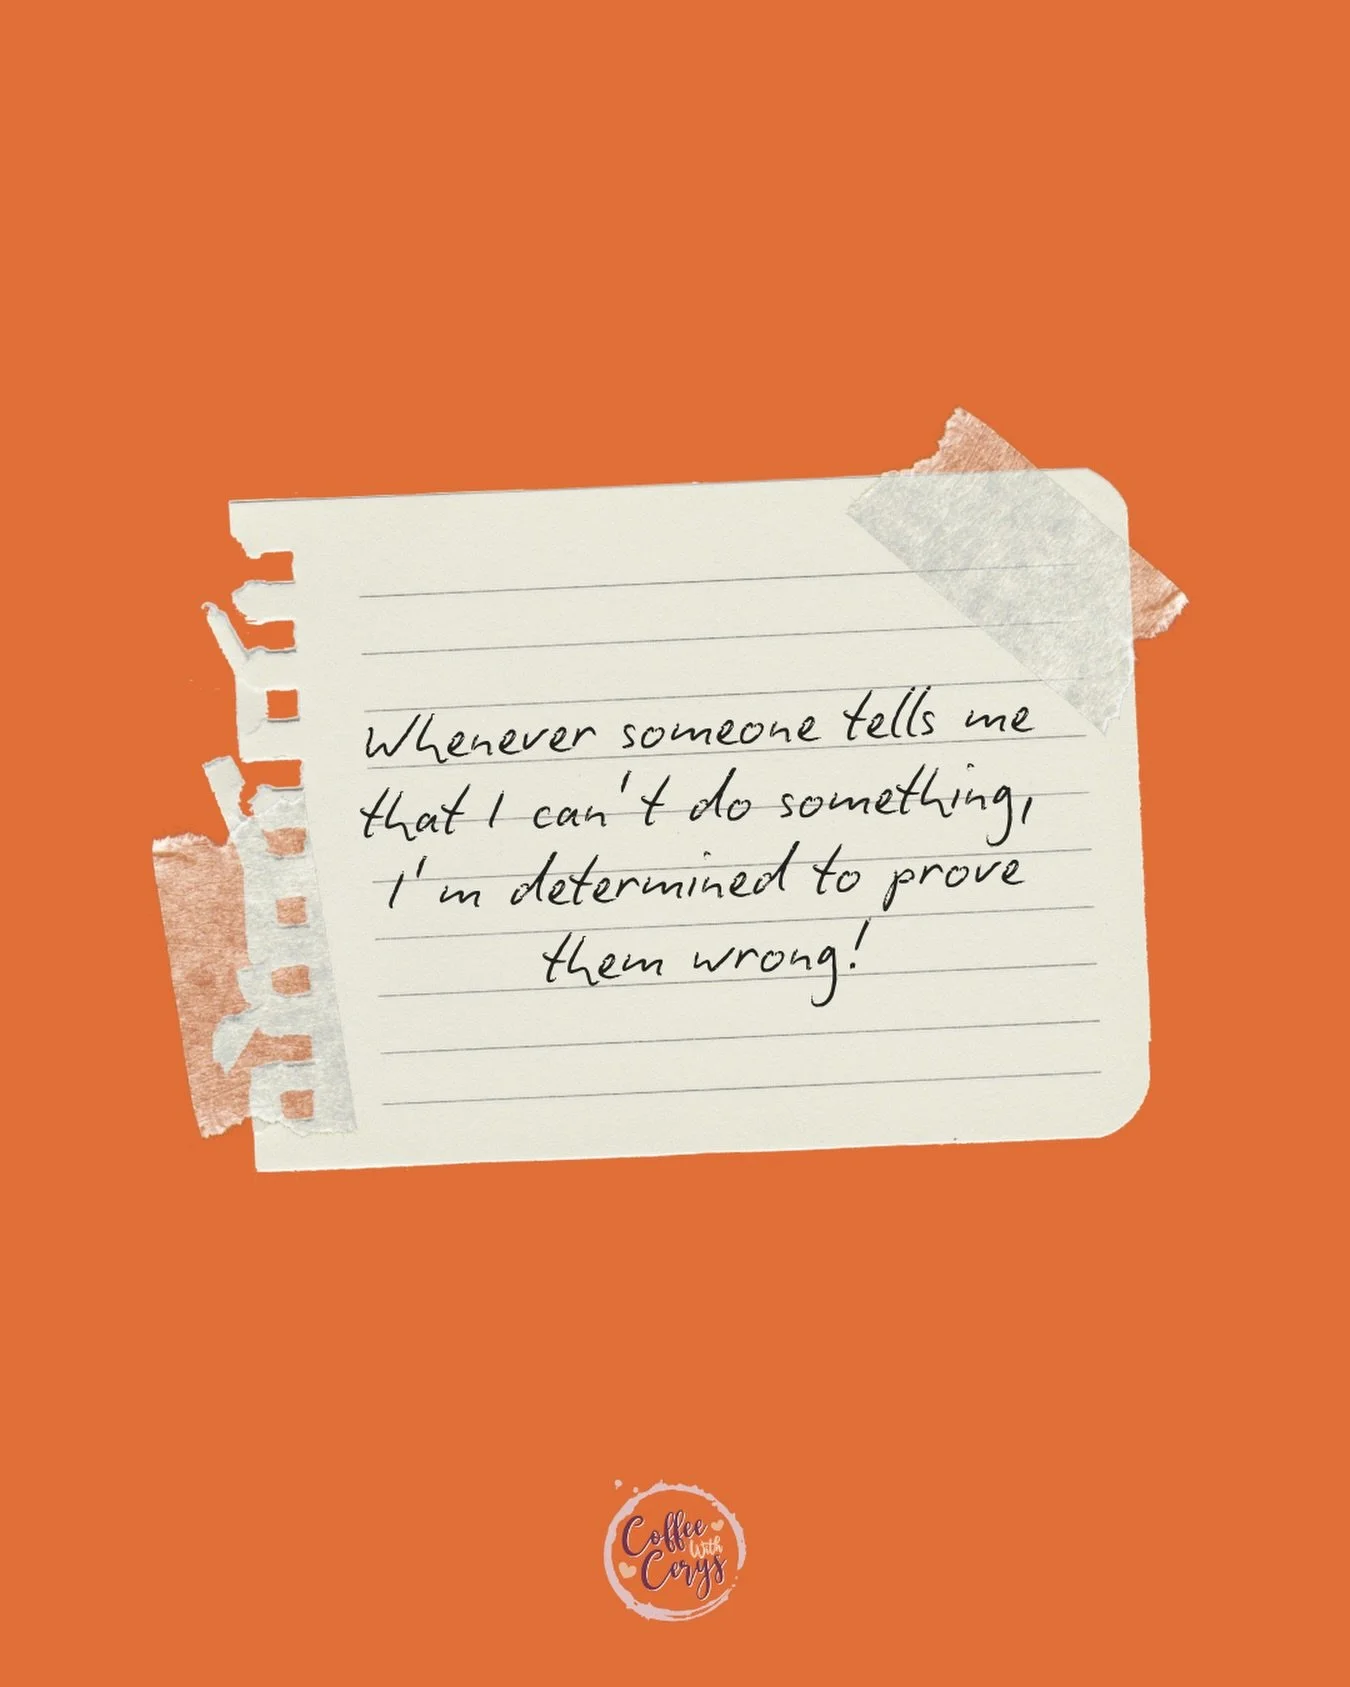 Whenever someone tells me
that I can't do something,
I'm determined to prove
them wrong!
Coffee
With
Cerys